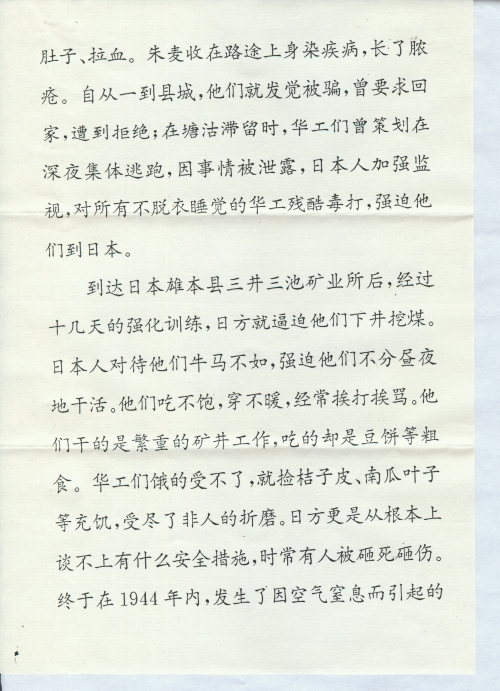 肚子、拉血。朱麦收在路途上身染疾病,长了脓
疮。自从一到县城,他们就发觉被骗,曾要求回
家,遭到拒绝;在塘沽滞留时,华工们曾策划在
深夜集体逃跑,因事情被泄露,日本人加强监
视,对所有不脱衣睡觉的华工残酷毒打,强迫他
们到日本。
到达日本雄本县三井三池矿业所后,经过
十几天的强化训练,日方就逼迫他们下井挖煤。
日本人对待他们牛马不如,强迫他们不分昼夜
地干活。他们吃不饱,穿不暖,经常挨打挨骂。他
们干的是繁重的矿井工作,吃的却是豆饼等粗
食。华工们饿的受不了,就捡桔子皮、南瓜叶子
等充饥,受尽了非人的折磨。日方更是从根本上
谈不上有什么安全措施,时常有人被砸死砸伤。
终于在1944年内,发生了因空气窒息而引起的